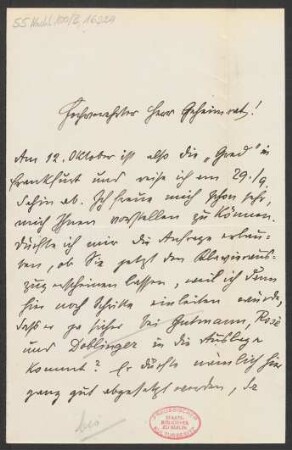 55 Nachl 100/B, 16324
Hochverehrter Herr Geheimrat!
Am 12. Oktober ist also die „Gred“ in
Frankfurt und reise ich am 29./9.
dahin ab. Ich freue mich schon sehr,
mich Ihnen vorstellen zu können.
Dürfte ich mir die Anfrage erlau-
ben, ob Sie jetzt den Klavieraus-
zug erscheinen lassen, weil ich dann
hier noch Schritte einleiten würde,
dass er ja sicher bei Gutmann, Rosé
und Doblinger in die Auslage
kommt? Er dürfte nämlich hier
ganz gut abgesetzt werden, da